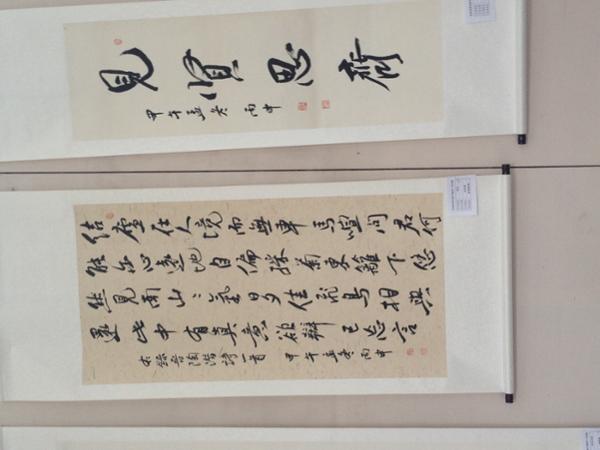 見賢思齊
甲午孟冬 丙申
結廬在人境而無車馬喧問君何
能爾心遠地自偏採菊東籬下悠
然見南山〻氣日夕佳飛鳥相與
還此中有真意欲辯已忘言
右錄晉陶潛詩一首 甲午孟冬 丙申